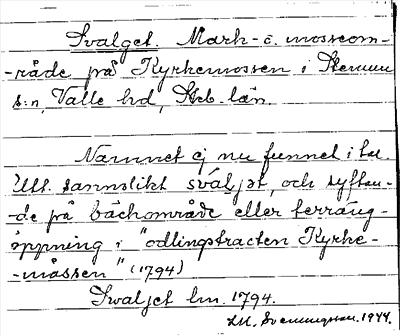 Svalget. Mark- o. mosseom-
-råde på Kyrkemossen i Stenum
s:n, Valle hd, Skb. län.
Namnet ej nu funnet i tal.
Utt. sannolikt sváljət, och syftan-
-de på bäckområde eller terräng-
öppning i "odlingstracten Kyrke-
-måssen" (1794)
Svaljet lm. 1794.
LM. Svenungsson. 1944.